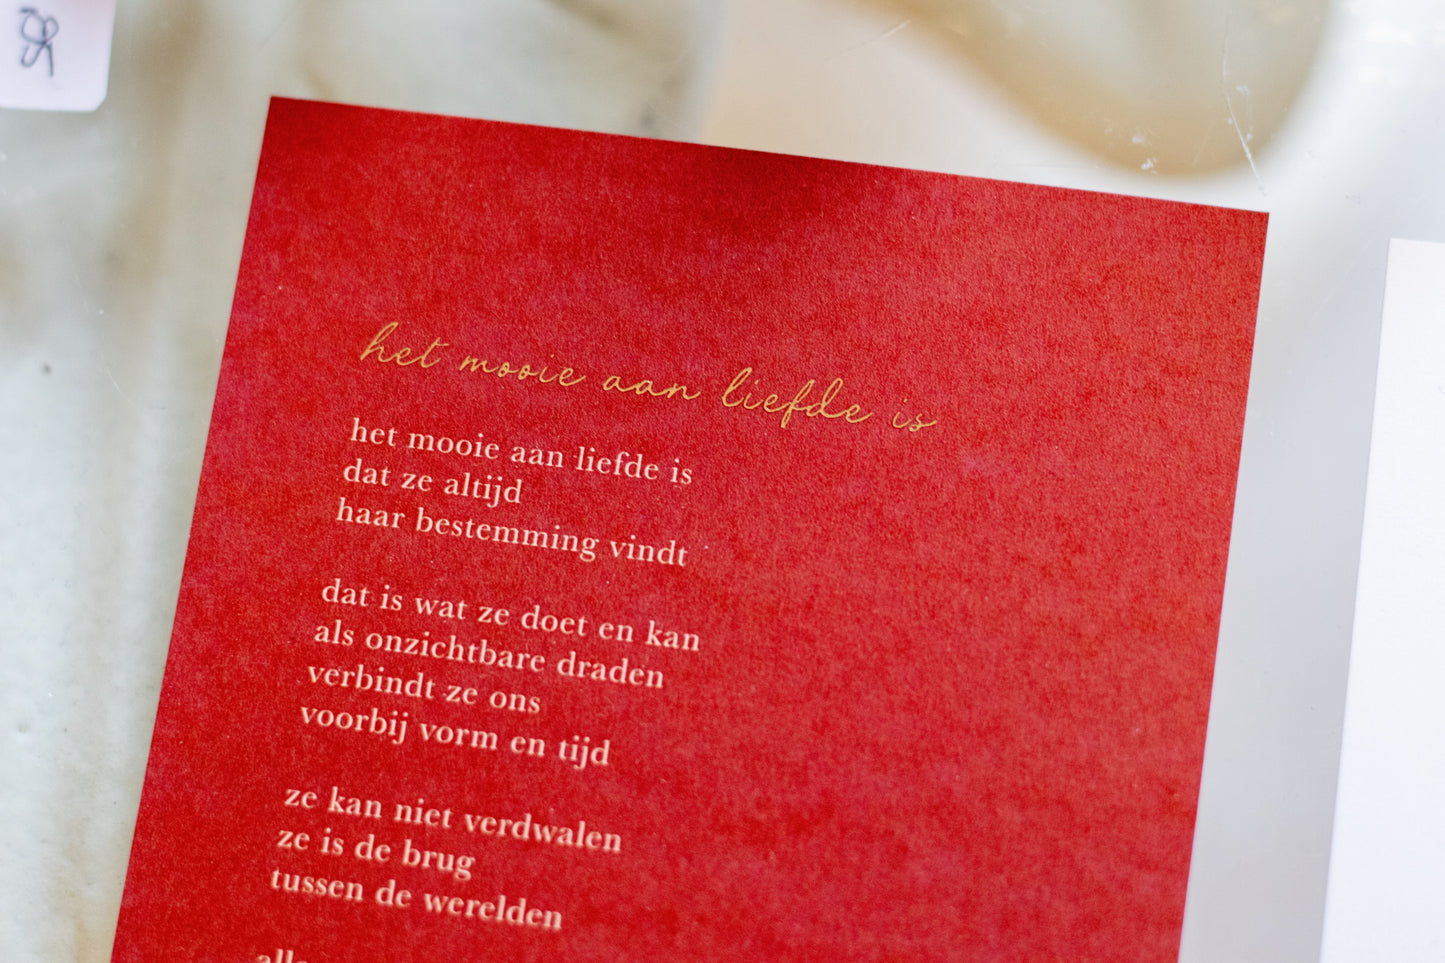 het mooie aan liefde is
het mooie aan liefde is
dat ze altijd
haar bestemming vindt
dat is wat ze doet en kan
als onzichtbare draden
verbindt ze ons
voorbij vorm en tijd
ze kan niet verdwalen
ze is de brug
tussen de werelden